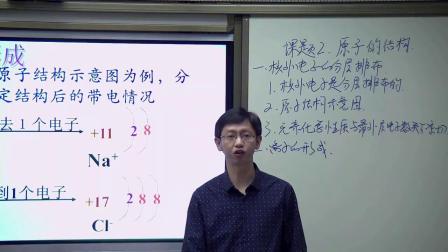 成
原子结构示意图为例，分
定结构后的带电情况
去1个电子
+11 2 8
Na⁺
到1个电子
+17 2 8 8
Cl⁻
课题2. 原子的结构
一.核外电子的分层排布
1.核外电子是分层排布的
2.原子结构示意图
3.元素化学性质与最外层电子数关系密切
离子的形成.